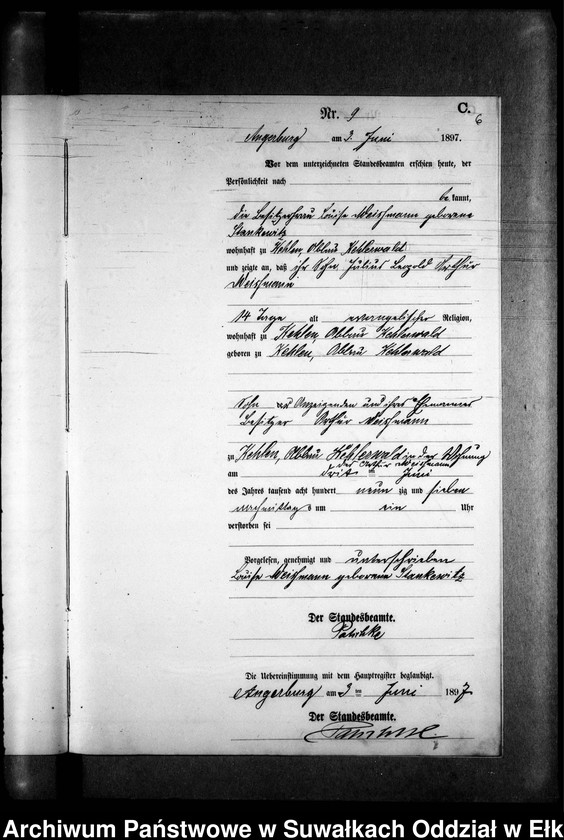 C.
6
Nr. 9
Angerburg am 3. Juni 1897.
Vor dem unterzeichneten Standesbeamten erschien heute, der
Persönlichkeit nach
be kannt,
die Besitzerfrau Louise Weissmann geborene
Stankewitz
wohnhaft zu Kehlen, Abbau Kehlerwald
und zeigte an, daß ihr Sohn Julius Leopold Arthur
Weissmann
14 Tage alt evangelischer Religion,
wohnhaft zu Kehlen, Abbau Kehlerwald
geboren zu Kehlen, Abbau Kehlerwald
Sohn der Anzeigenden und ihres Ehemannes
Besitzer Arthur Weissmann
zu Kehlen, Abbau Kehlerwald in der Wohnung
des Arthur Weissmann
am Juni
des Jahres tausend acht hundert neun zig und sieben
nachmittags um ein Uhr
verstorben sei
Vorgelesen, genehmigt und unterschrieben
Louise Weissmann geborene Stankewitz
Der Standesbeamte.
Die Uebereinstimmung mit dem Hauptregister beglaubigt.
Angerburg am 3 ten Juni 1897
Der Standesbeamte.
Archiwum Państwowe w Suwałkach Oddział w Ełk